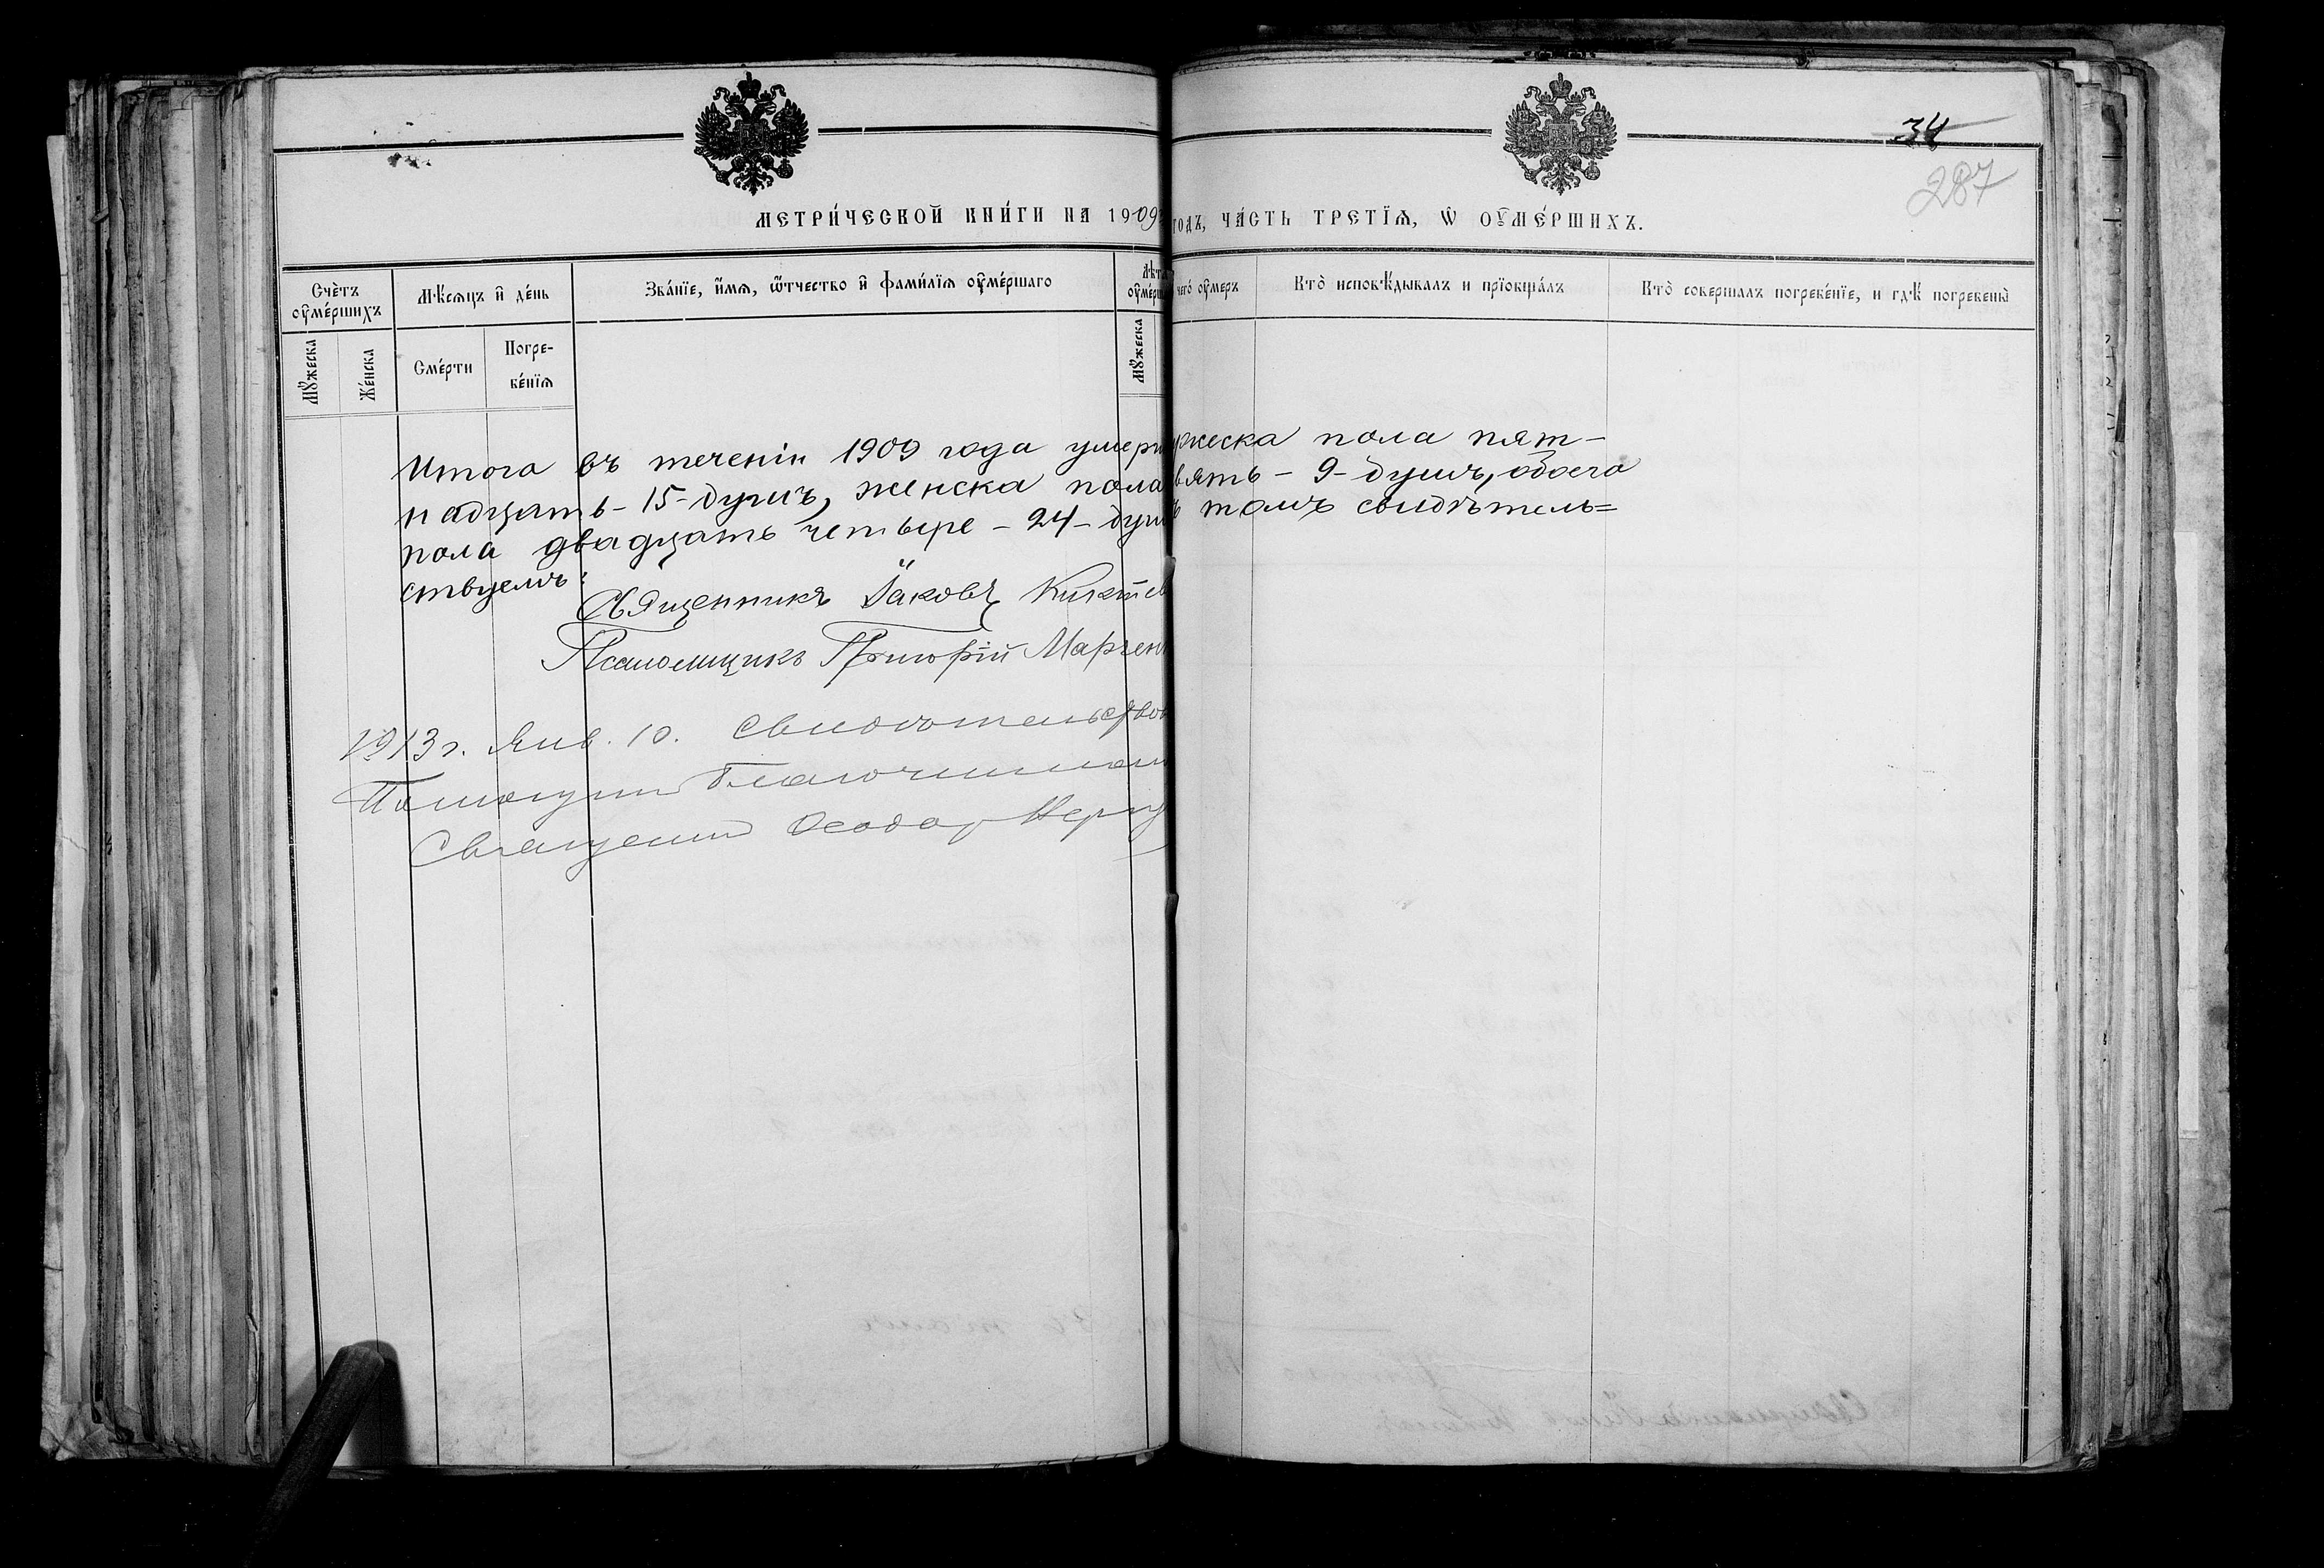 34
287
МЕТРИ́ЧЕСКОЙ КНИ́ГИ НА 1909 годъ, ЧА́СТЬ ТРЕТЇѦ, Ѡ ОУ҆МЕ́РШИХЪ.
Счѐтъ оу҆ме́ршихъ
Мѣ́сѧцъ и҆ де́нь
Зва́нїе, и҆́мѧ, ѻ҆́тчество и҆ фами́лїѧ оу҆ме́ршаго
Лѣта оу҆ме́рш
чегѡ̀ оу҆меръ
Кто̀ исповѣ́дывалъ и прїобща́лъ
Кто̀ совершалъ погребе́нїе, и гдѣ̀ погребены̀
Мꙋ́жеска
Же́нска
Сме́рти
Погребе́нїѧ
Мꙋ́жеска
Итого въ теченіи 1909 года умер жеска пола пят-
надцать - 15 - душъ, женска пола вять - 9 - душъ, обоего
пола двадцать четыре - 24 - душ томъ свидѣтель=
ствуемъ:
Священникъ Іаковъ
Псаломщикъ Григорій Марчен
1913 г. Янв. 10. Свидѣтельствов
Помощник Благочинного
Священник Феодор